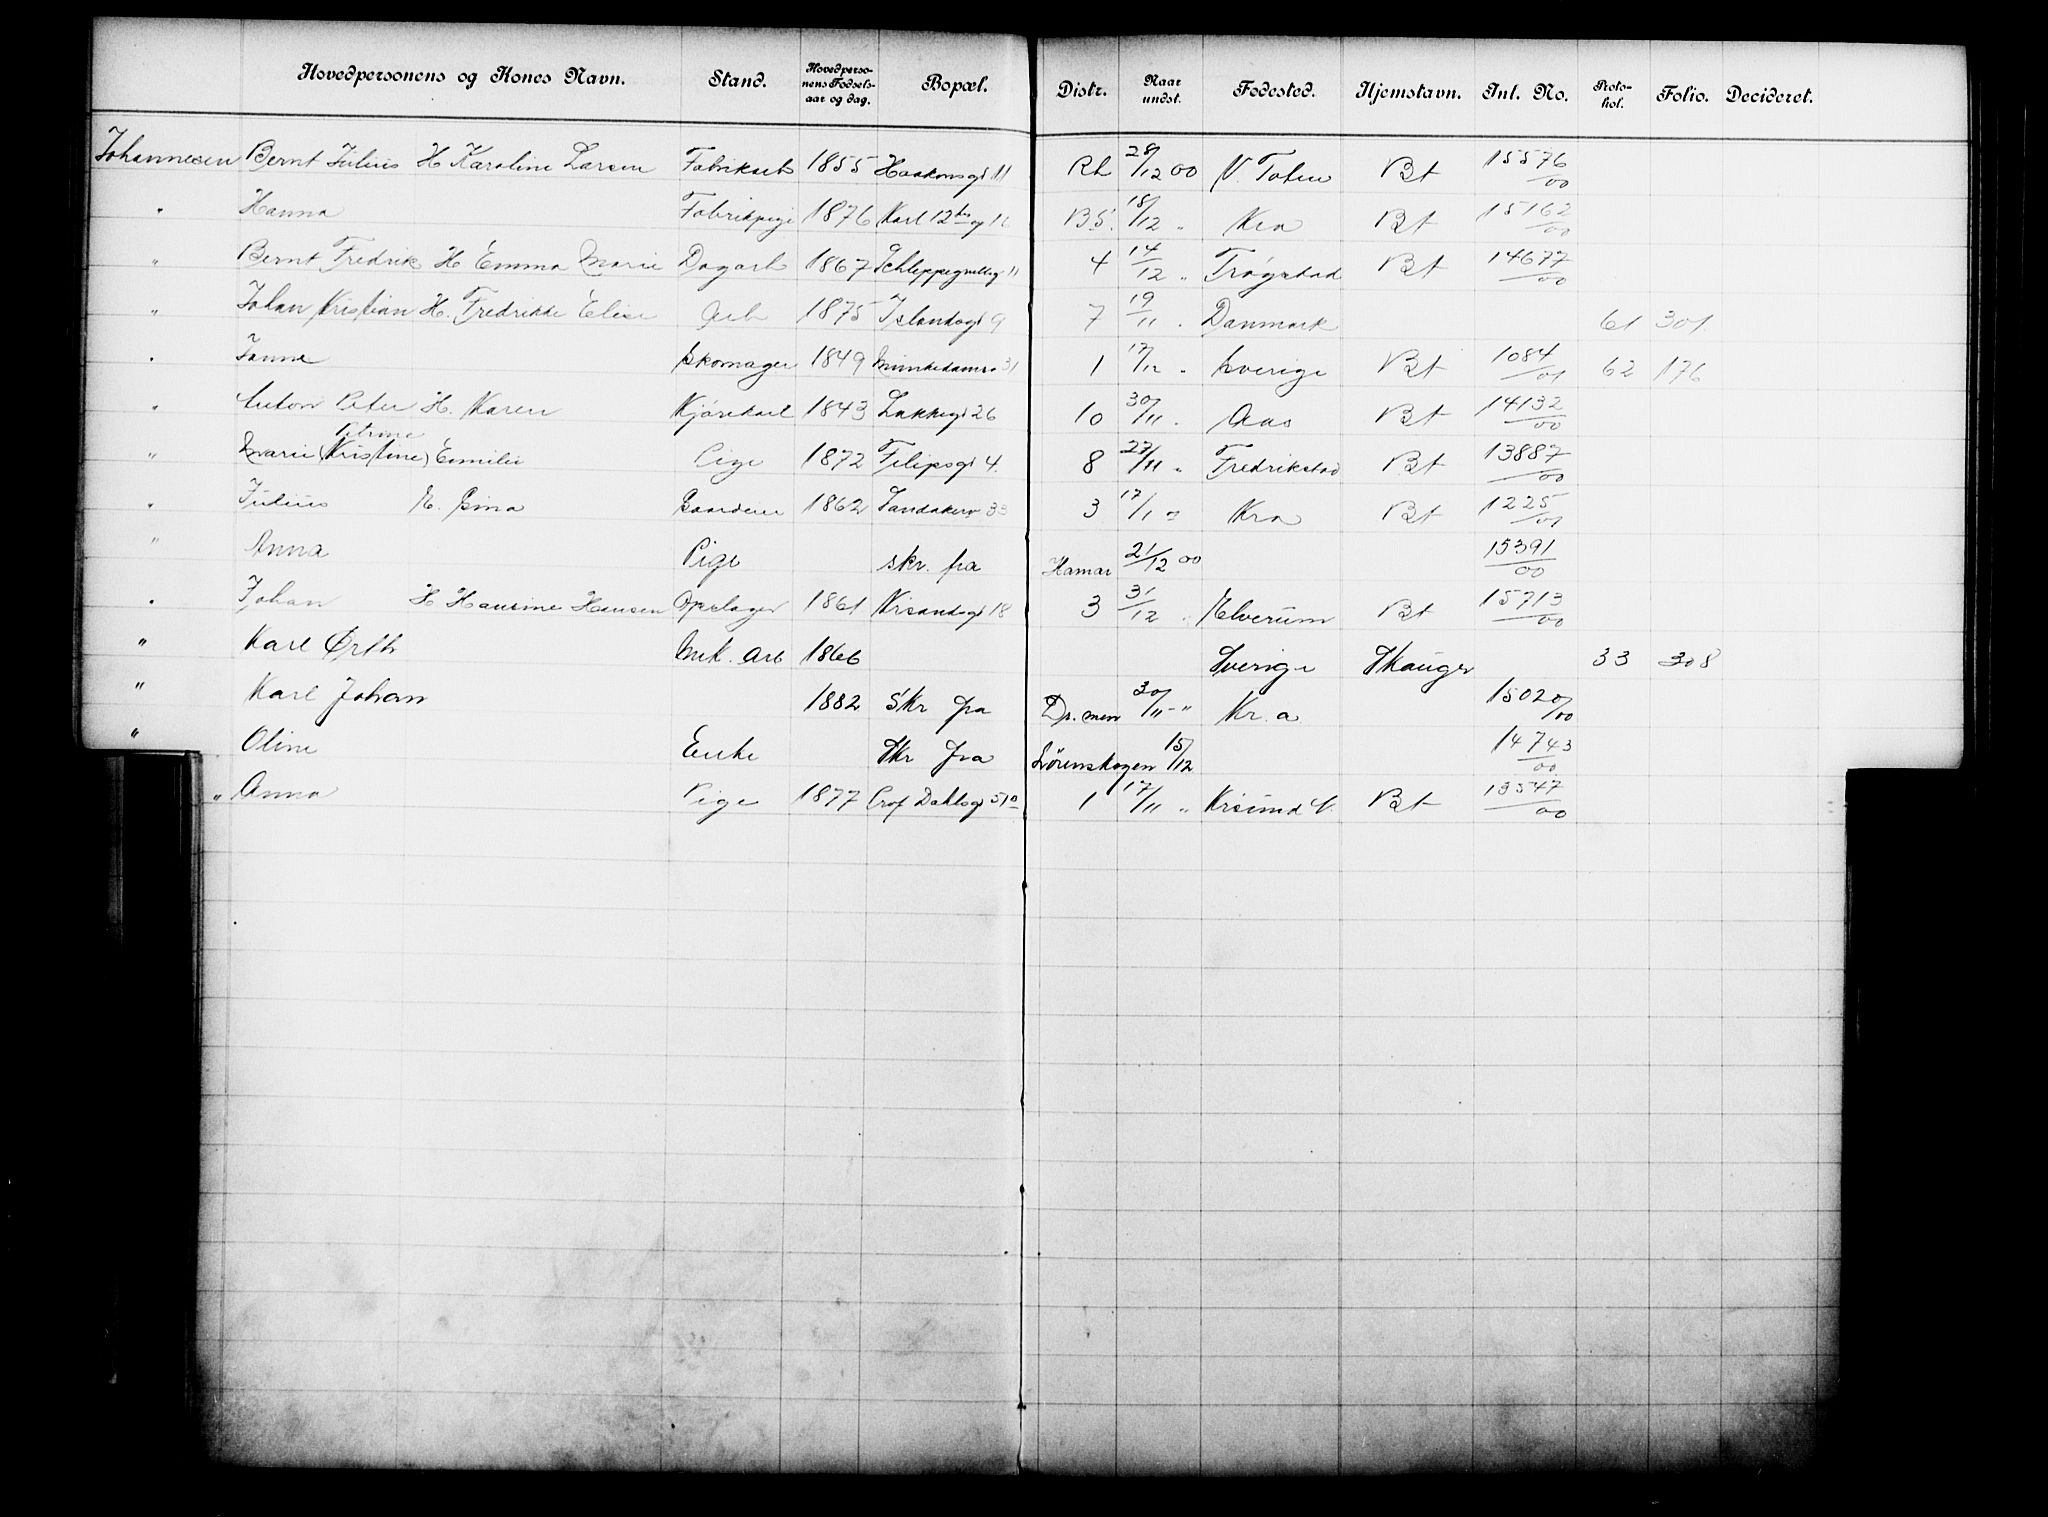 Hovedpersonens og Kones Navn. Stand. Hovedperso-nens Fødsels-aar og dag. Bopæl. Distr. Naar undst. Fødested. Hjemstavn. Int. No. Proto-kol. Folio. Decideret.
Johannesen Bernt Julius H Karoline Larsen Fabrikarb 1855 Haakonsgd 11 Rh 28/12 00 V. Toten Bt 15576/00
" Hanna Fabrikpige 1876 Karl 12tes g 16 BS. 18/12 " Kra Bt 15162/00
" Bernt Fredrik H Emma Marie Dagarb 1867 Schleppegrellsg 11 4 14/12 " Trøgstad Bt 14677/00
" Johan Kristian H. Fredrikke Elise Arb 1875 Islandsgd 9 7 19/11 " Danmark 61 301
" Janne Skomager 1849 Munkedamsv 31 1 17/12 " Sverige Bt 1084/01 62 176
" Anton Peter H. Karen Kjørekarl 1843 Lakkegd 26 10 30/11 " Aas Bt 14132/00
Petrine
" Marie (Kristine) Emilie Pige 1872 Filipsgd 4. 8 27/11 " Fredrikstad Bt 13887/00
" Julius H. Sina 1862 Sandakerv 33 3 17/1 Kra Bt 1225/01
" Anna Pige skr. fra Hamar 21/12 00 15391/00
" Johan H Hansine Hansen Opslager 1861 Krsandsgd 18 3 31/12 " Elverum Bt 15713/00
" Karl Ørth Mek. Arb 1866 Sverige Skauger 33 308
" Karl Johan 1882 Skr fra Dr.men 30/11 -" Kr.a 15020/00
" Oline Enke Skr fra Lørenskogen 15/12 14743/00
" Anna Pige 1877 Prof Dahlsgd 51a 1 17/11 " Krsund N. Bt 13547/00